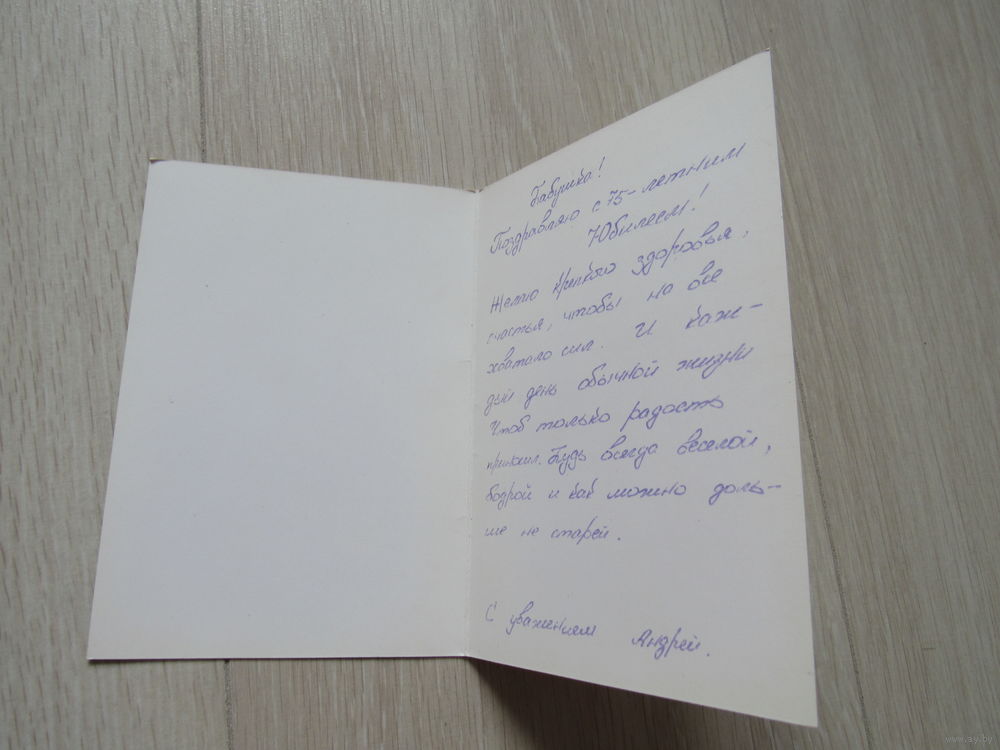 Бабушка!
Поздравляю с 75-летним
Юбилеем!
Желаю крепкого здоровья,
счастья, чтобы на все
хватало сил. И каж-
дый день обычной жизни
Чтоб только радость
приносил. Будь всегда веселой,
бодрой и как можно доль-
ше не старей.
С уважением Андрей.
www.ay.by